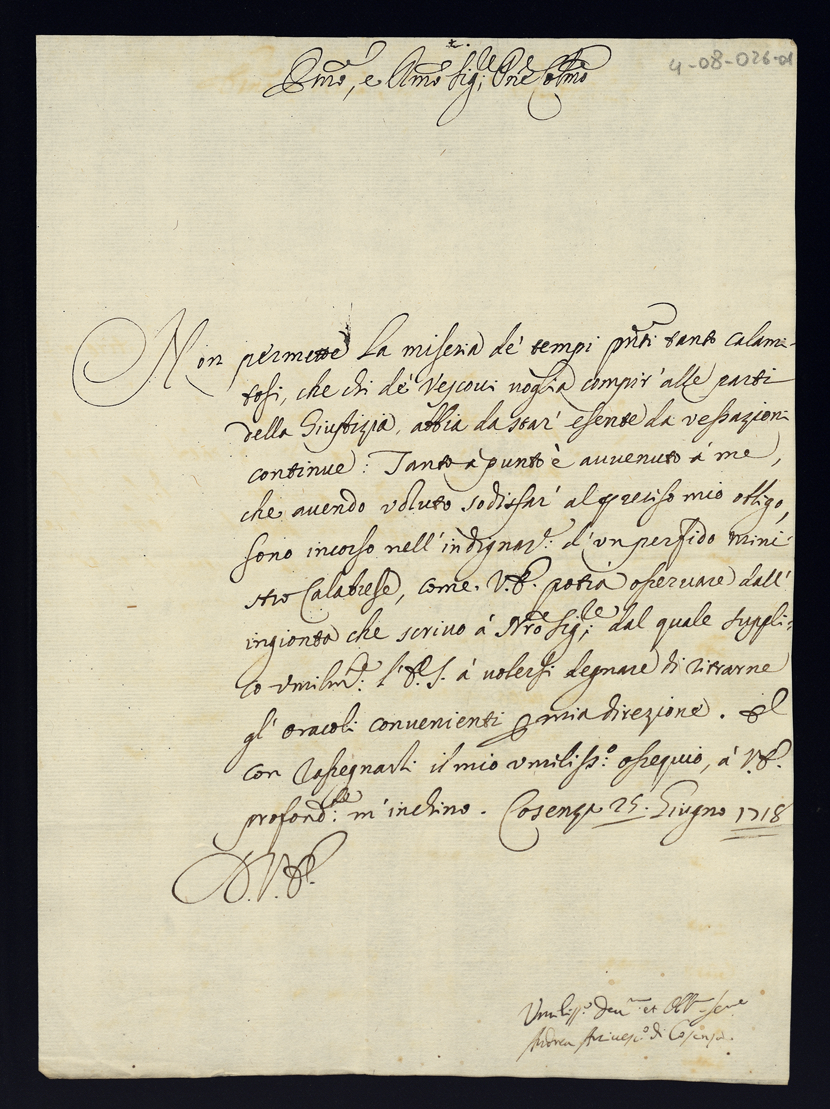 4-08-026-01
Emo, e Rmo Sig:re Pne Colmo
Non permette la miseria de' tempi pnti tanto calami-
tosi, che chi de' Vescovi voglia compir' alle parti
della Giustizia, abbia da star' esente da vessazioni
continue: Tanto a punto è auuenuto á me,
che auendo voluto sodisfar' al preciso mio obligo,
sono incorso nell'indignaz.e: d'un perfido mini-
stro Calabrese, come V.E. potrà osseruare dall'
ingionta che scriuo á Nro Sig:re dal quale suppli-
co vmilm.te: l'E.S. á volersi degnare di ritrarne
gl'oracoli convenienti per mia direzione. Et
con rassegnarli il mio vmiliss:o ossequio, á V.E.
profond:te m'inchino. Cosenza 25. Giugno 1718
D.V.E.
Vmiliss:o Deu:mo et Obb:mo Seru:e
Andrea Arciuesc:o di Cosenza.